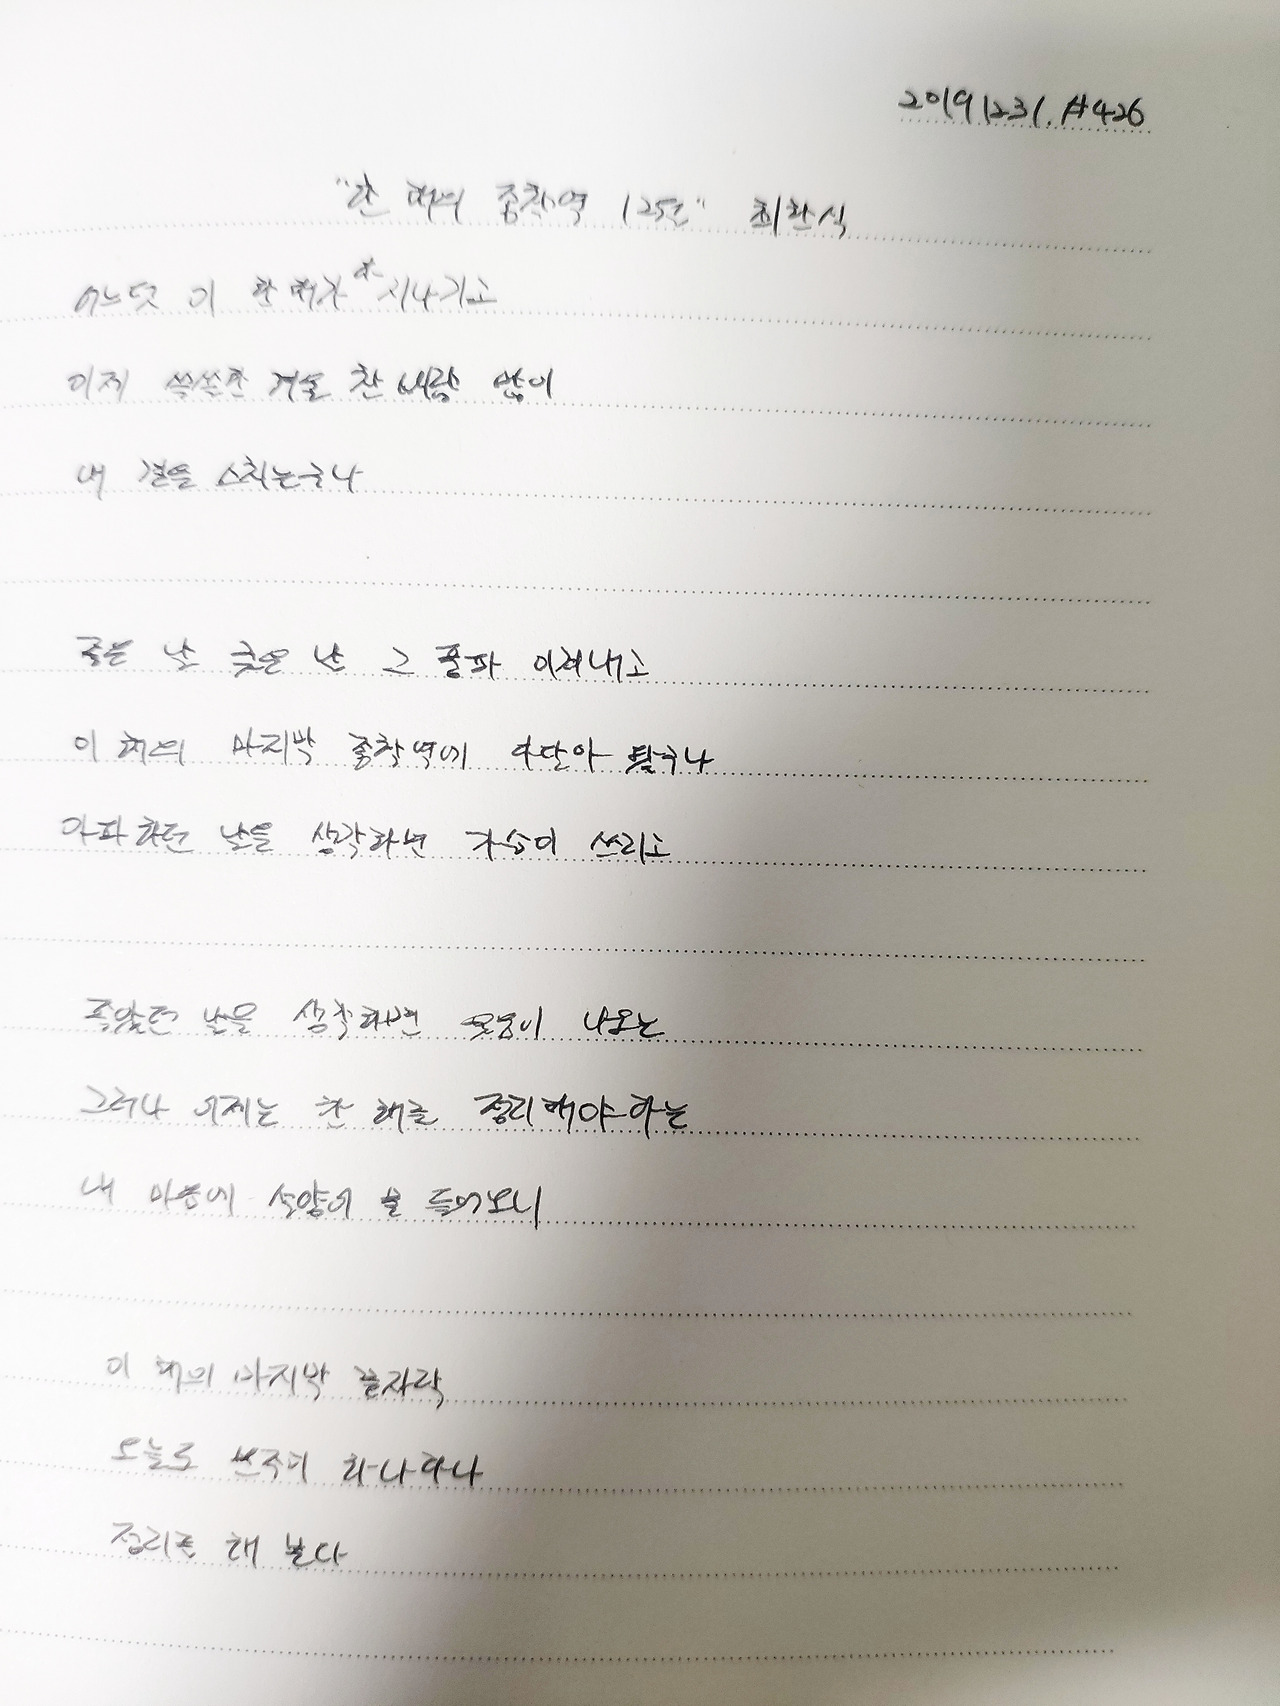 20191231. #426
"한 해의 종착역 12월" 최한식
어느덧 이 한 해가 지나가고
이제 쓸쓸한 겨울 찬 바람 많이
내 곁을 스치는구나
좋은 날 궂은 날 그 풍파 이겨내고
이 해의 마지막 종착역에 다달아
아파하던 날을 생각하면 가슴이 쓰리고
좋았던 날을 생각하면 웃음이 나오는
그러나 이제는 한 해를 정리해야하는
내 마음에 석양이 들어보니
이 해의 마지막 끝자락
오늘도 하나하나
정리를 해 본다